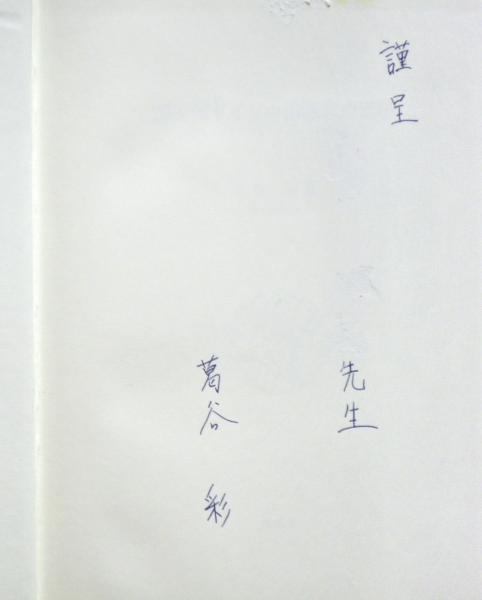 謹呈
先生
葛谷 彩